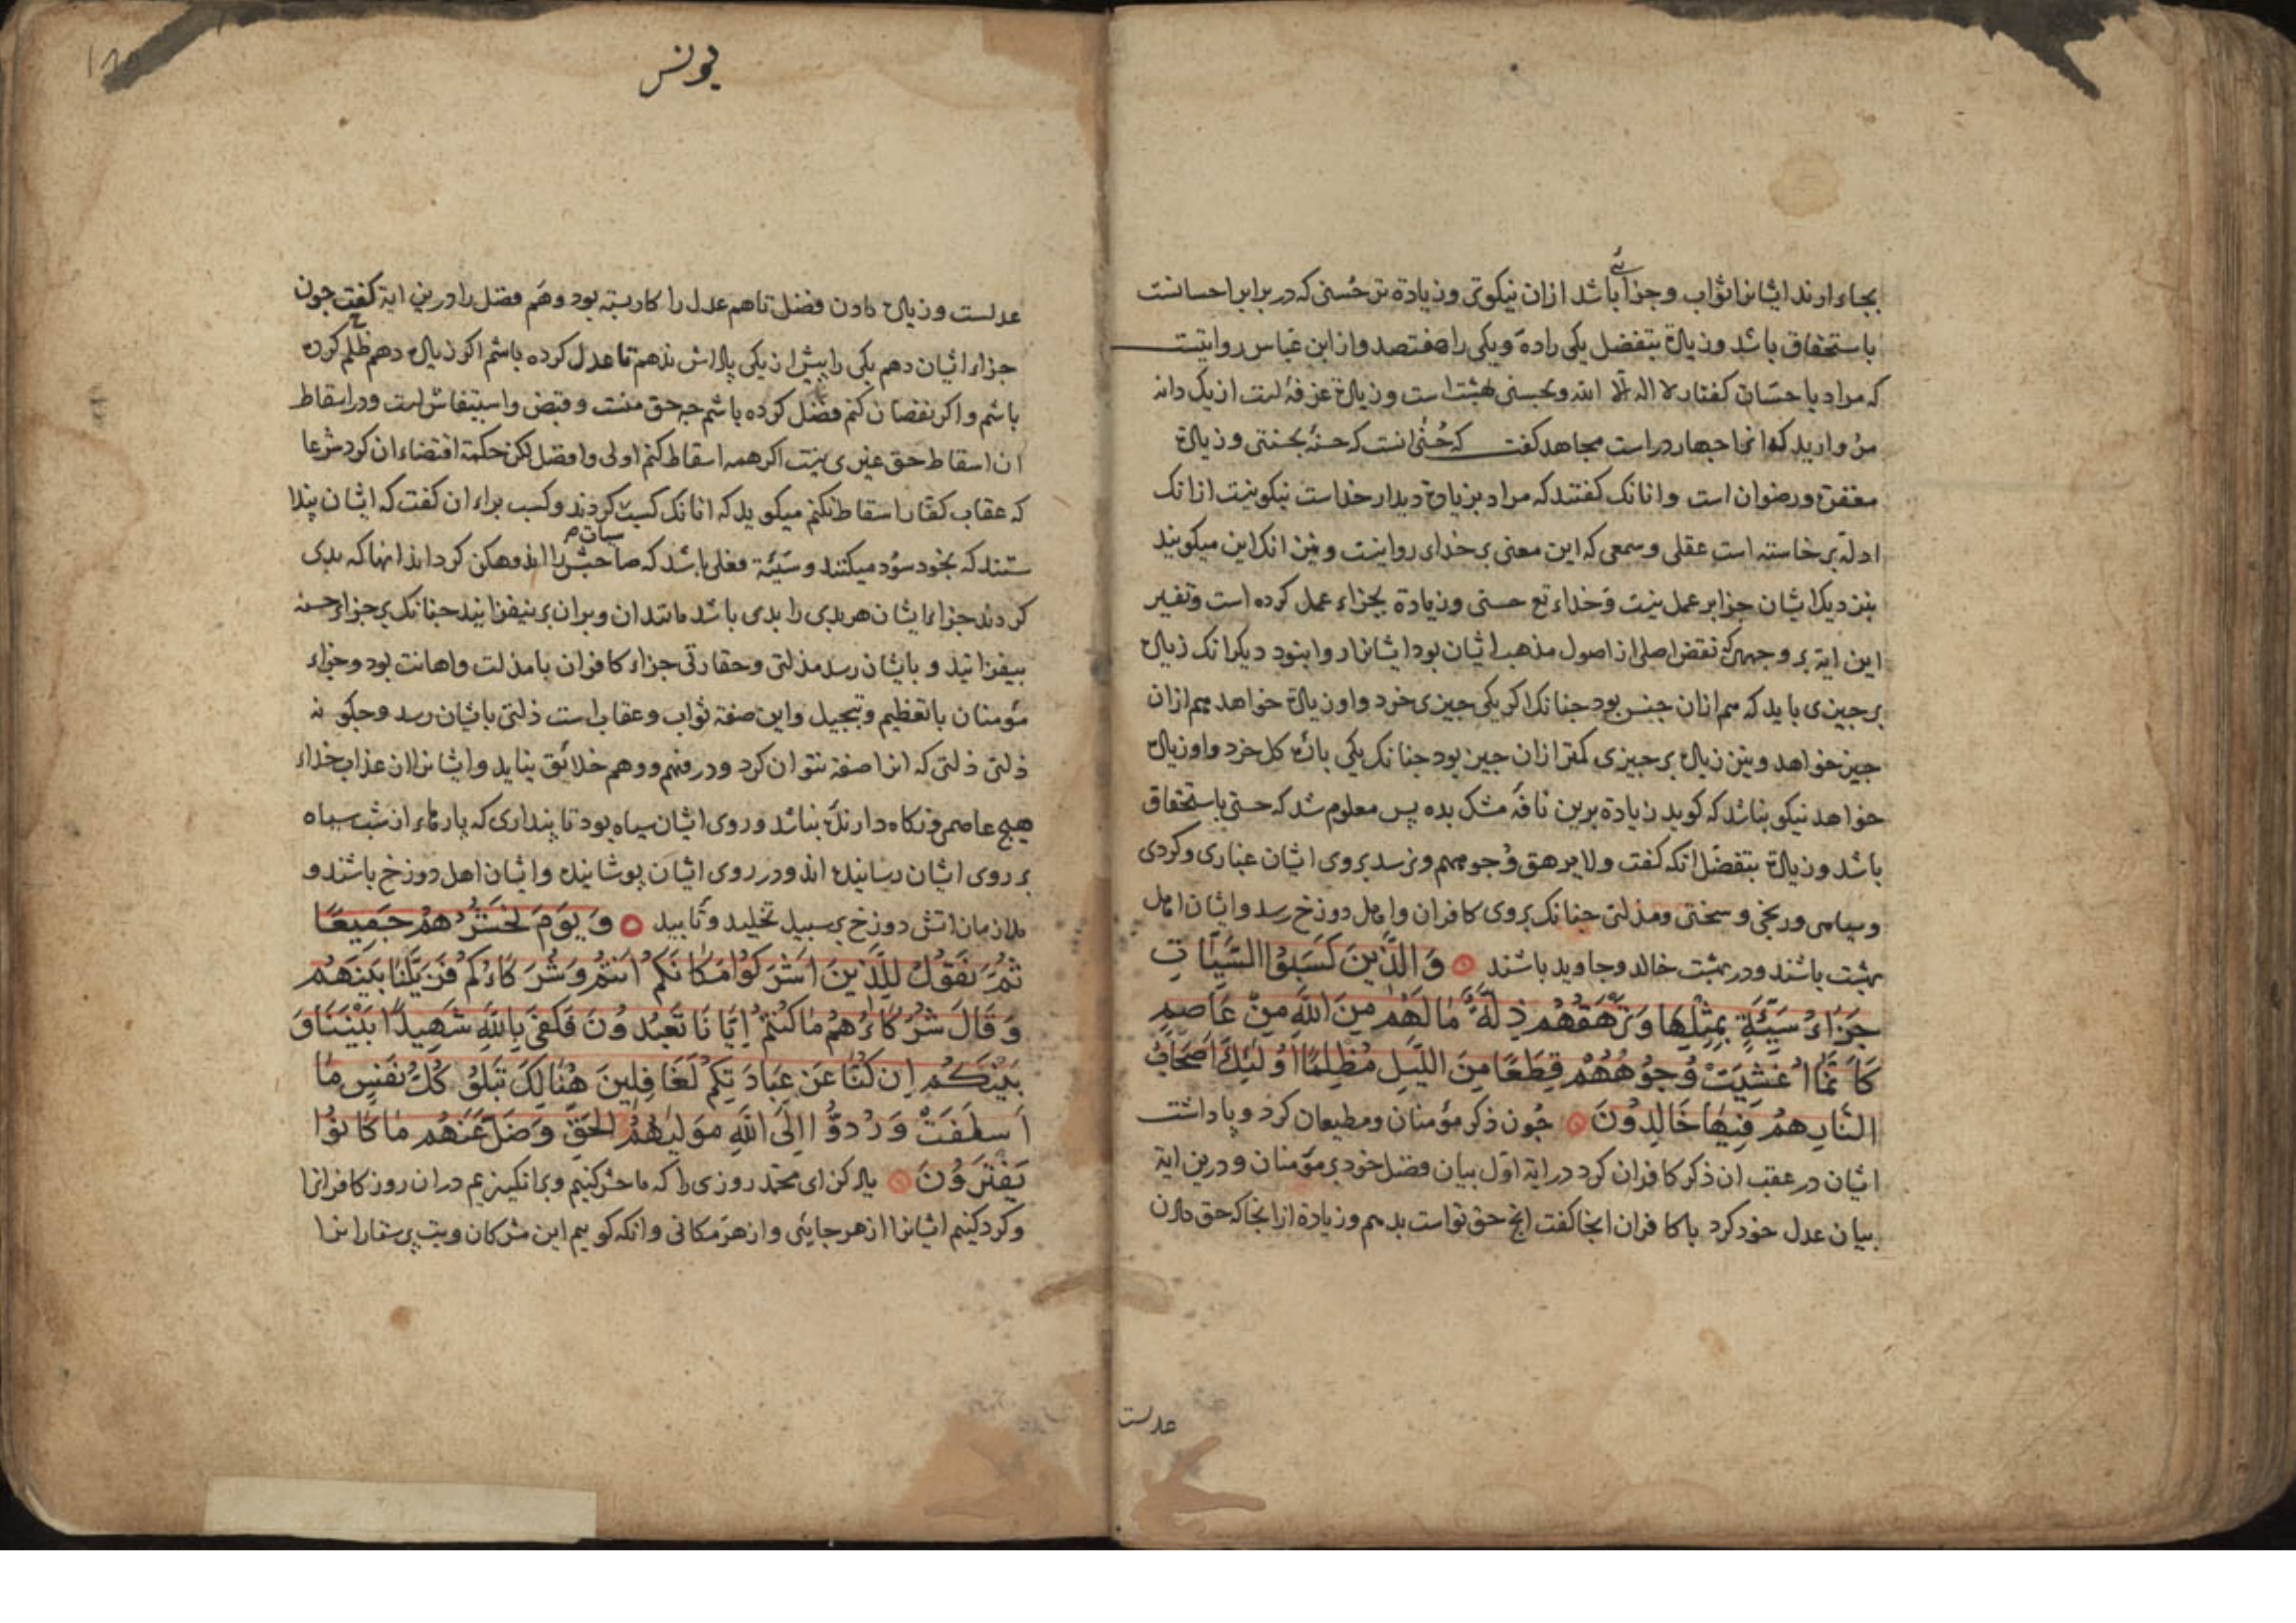 بجاء ارند ایشانرا ثواب و جزائی باشد ازان نیکوتر و زیادة تر حُسنی که در برابر احسانست
باستحقاق باشد و زیادة بتفضل یکی را ده و یکی را هفتصد و از ابن عباس روایتست
که مراد باحسان گفتار لا اله الا الله و بحسنی بهشت است و زیادة غرفهٔ است از یک دانه
مروارید که انرا چهار در است مجاهد کفت که حُسنی انست که حسنهٔ بحسنتی و زیادة
مغفرة و رضوان است و انانک کفتند که مراد بزیادة دیدار خداست نیکو نیست ازانک
ادلهٔ برخاسته است عقلی و سمعی که این معنی بر خدای روا نیست و نیز انک این میکویند
بنزدیک ایشان جزا بر عمل نیست و خداء تع حسنی و زیادة بجزاء عمل کرده است و تفسیر
این ایة بر وجهی که نقض اصلی از اصول مذهب ایشان بود ایشانرا روا نبود دیکر انک زیادة
بر چیزی باید که هم ازان جنس بود چنانک اکر یکی چیزی خرد و او زیادة خواهد هم ازان
چیز خواهد و نیز زیادة بر چیزی کمتر ازان چیز بود چنانک یکی باقهٔ کل خرد و او زیادة
خواهد نیکو نباشد که کوید زیادة برین نافهٔ مشک بده پس معلوم شد که حسنی باستحقاق
باشد و زیادة بتفضل انکه کفت ولا یرهق وُجوههم و نرسد بروی ایشان غباری و کردی
و سیاهی و رنجی و سختی و مذلتی چنانک بروی کافران و اهل دوزخ رسد و ایشان اهل
بهشت باشند و در بهشت خالد و جاوید باشند وَالَّذِینَ کَسَبُوا السَّیِّاٰتِ
جَزَاءُ سَیِّئَةٍ بِمِثْلِهَا وَتَرْهَقُهُمْ ذِلَّةٌ مَا لَهُمْ مِنَ اللّٰهِ مِنْ عَاصِمٍ
کَاَنَّمَا اُغْشِیَتْ وُجُوهُهُمْ قِطَعًا مِنَ اللَّیْلِ مُظْلِمًا اُولٰئِکَ اَصْحَابُ
النَّارِ هُمْ فِیهَا خَالِدُونَ چون ذکر مؤمنان و مطیعان کرد و پاداشت
ایشان در عقب ان ذکر کافران کرد در ایة اوّل بیان فضل خود بر مؤمنان و درین ایة
بیان عدل خود کرد با کافران انجا کفت انچ حق تواست بدهم و زیادة از انجا که حق دادن
عدلست
یونس
عدلست و زیادة دادن فضل تا هم عدل را کار بسته بود و هم فضل را درین ایة کفت چون
جزاء ایشان دهم یکی را بیش از یکی پاداش ندهم تا عدل کرده باشم اکر زیادة دهم ظلم کرده
باشم و اکر نقصان کنم فضل کرده باشم چه حق منست و قبض و استیفاش است و در اسقاط
ان اسقاط حق غیری نیست اکر همه اسقاط کنم اولی و افضل لکن حکمة اقتضاء ان کرد شرعا
که عقاب کفار اسقاط نکنم میکوید که انانک کسب کردند و کسب براء ان کفت که ایشان پندا
شتند که بخود سود میکنند و سَیّئة فعلی باشد که صاحبش را اندوهکن کرداند انها که بدی
کردند جزاء ایشان هر بدی را بدی باشد مانند ان و بران بر نیفزایند چنانک بر جزاء حسنه
بیفزایند و بایشان رسد مذلتی و حقارتی جزاء کافران با مذلت و اهانت بود و جزاء
مؤمنان با تعظیم و تبجیل و این صفة ثواب و عقاب است ذلتی بایشان رسد و چکونه
ذلتی ذلتی که انرا صفة نتوان کرد و در فهم و وهم خلائق نیاید و ایشانرا از عذاب خداء
هیچ عاصمی و نکاه دارندهٔ نباشد و روی ایشان سیاه بود تا پنداری که پارهاء از شب سیاه
بر روی ایشان رسانیده اند و در روی ایشان پوشانیده و ایشان اهل دوزخ باشند و
ملازمان اتش دوزخ بر سبیل تخلید و تأبید وَیَوْمَ نَحْشُرُهُمْ جَمِیعًا
ثُمَّ نَقُولُ لِلَّذِینَ اَشْرَکُوا مَکَانَکُمْ اَنْتُمْ وَشُرَکَاؤُکُمْ فَزَیَّلْنَا بَیْنَهُمْ
وَقَالَ شُرَکَاؤُهُمْ مَا کُنْتُمْ اِیَّانَا تَعْبُدُونَ فَکَفیٰ بِاللّٰهِ شَهِیدًا بَیْنَنَا وَ
بَیْنَکُمْ اِنْ کُنَّا عَنْ عِبَادَتِکُمْ لَغَافِلِینَ هُنَالِکَ تَبْلُو کُلُّ نَفْسٍ مَا
اَسْلَفَتْ وَرُدُّوا اِلَی اللّٰهِ مَوْلٰیهُمُ الْحَقِّ وَضَلَّ عَنْهُمْ مَا کَانُوا
یَفْتَرُونَ یاد کن ای محمّد روزی را که ما حشر کنیم و برانکیزیم در ان روز کافرانرا
و کرد کنیم ایشانرا از هر جایئی و از هر مکانی و انکه کوییم این مشرکان و بت پرستارانرا